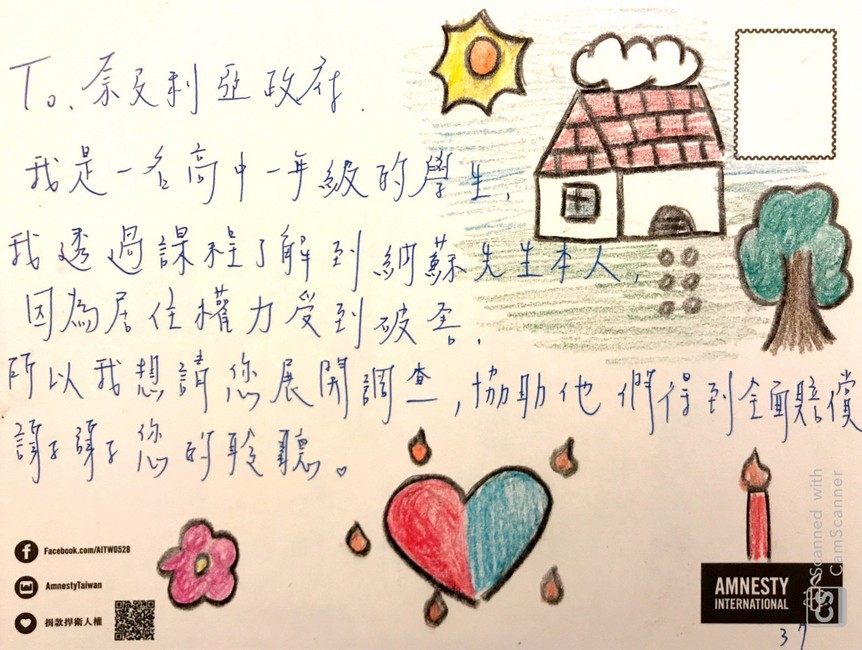 To. 奈及利亞政府.
我是一名高中一年級的學生,
我透過課程了解到納蘇先生本人,
因為居住權力受到破害,
所以我想請您展開調查,協助他們得到全面賠償
謝謝您的聆聽。
Facebook.com/AITW0528
AmnestyTaiwan
捐款捍衛人權
AMNESTY
INTERNATIONAL
37
CS Scanned with
CamScanner